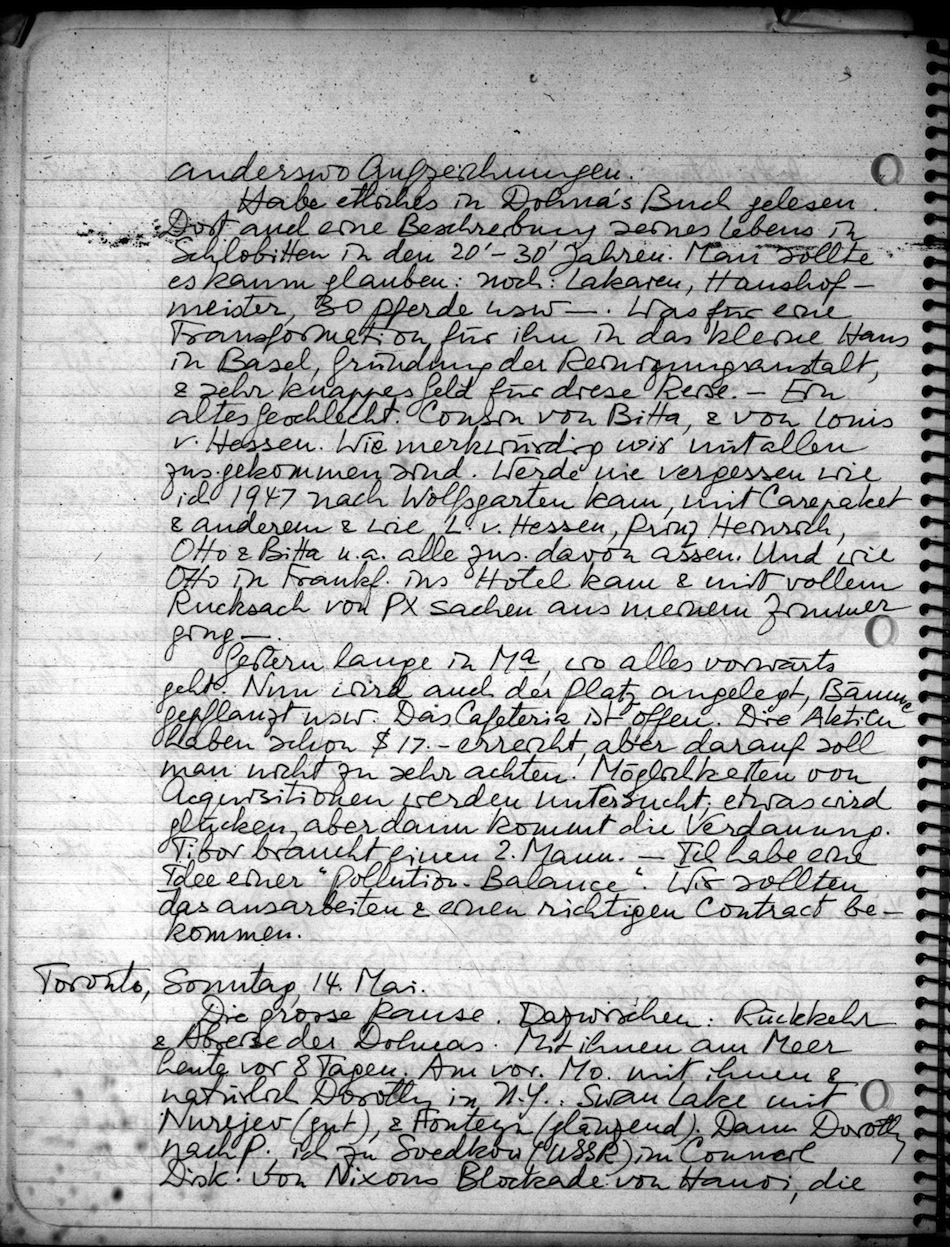 anderswo Aufzeichnungen.
Habe etliches in Dohna's Buch gelesen.
Dort auch eine Beschreibung seines Lebens in
Schlobitten in den 20'-30' Jahren. Man sollte
es kaum glauben: noch: Lakaien, Haushof-
meister, 30 Pferde usw—. Was für eine
Transformation für ihn in das kleine Haus
in Basel, Gründung der Reinigungsanstalt,
& sehr knappes Geld für diese Reise. — Ein
altes Geschlecht. Cousin von Bitta, & von Louis
v. Hessen. Wie merkwürdig wir mit allen
zus.gekommen sind. Werde nie vergessen wie
ich 1947 nach Wolfsgarten kam, mit Carepaket
& anderem & wie L. v. Hessen, Prinz Heinrich,
Otto & Bitta u.a. alle zus. davon assen. Und wie
Otto in Frankf. ins Hotel kam & mit vollem
Rucksack von PX sachen aus meinem Zimmer
ging—.
Gestern lange in Ma, wo alles vorwärts
geht. Nun wird auch der Platz angelegt, Bäume
gepflanzt usw. Das Cafeteria ist offen. Die Aktien
haben schon $17.- erreicht, aber darauf soll
man nicht zu sehr achten. Möglichkeiten von
Acquisitionen werden untersucht; etwas wird
glücken, aber dann kommt die Verdauung.
Tibor braucht einen 2. Mann. — Ich habe eine
Idee einer "Pollution-Balance". Wir sollten
das ausarbeiten & einen richtigen Contract be-
kommen.
Toronto, Sonntag, 14. Mai.
Die grosse Pause. Dazwischen: Rückkehr
& Abreise der Dohnas. Mit ihnen am Meer
heute vor 8 Tagen. Am vor. Mo. mit ihnen &
natürlich Dorothy in N.Y.: Swan Lake mit
Nurejev (gut), & Fonteyn (glänzend). Dann Dorothy
nach P., ich zu (USSR) im Council
Disk. von Nixons Blockade von Hanoi, die